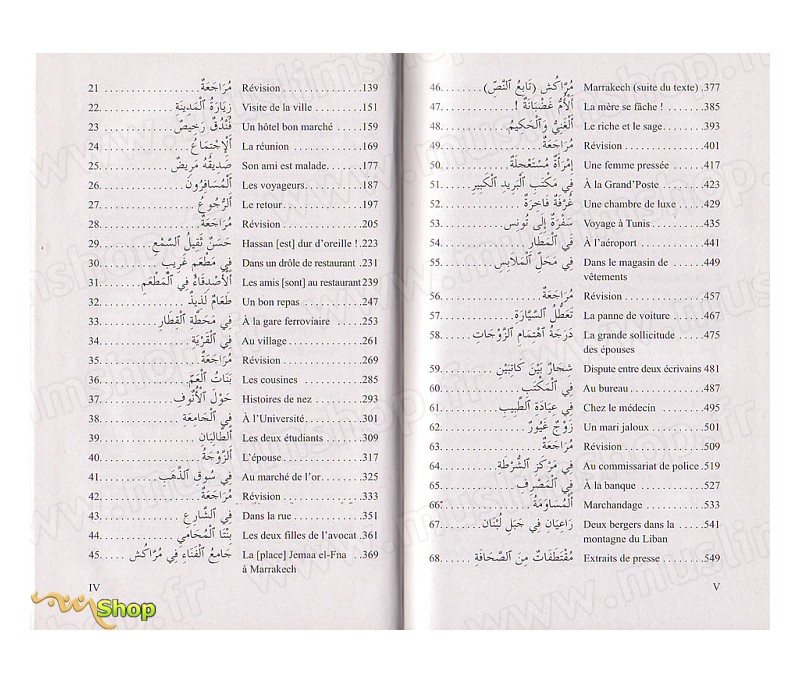 21 . . . . . . . . . . . . . . . . . . مُرَاجَعَةٌ Révision . . . . . . . . . . . . . . . .139
22. . . . . . . . . . . . . زِيَارَةُ ٱلْمَدِينَةِ Visite de la ville . . . . . . . . . .151
23 . . . . . . . . . . . . . . فُنْدُقٌ رَخِيصٌ Un hôtel bon marché . . . . . .159
24 . . . . . . . . . . . . . . . . ٱلْاِجْتِمَاعُ La réunion . . . . . . . . . . . . . .169
25. . . . . . . . . . . . . . صَدِيقُهُ مَرِيضٌ Son ami est malade. . . . . . . .177
26 . . . . . . . . . . . . . . . . ٱلْمُسَافِرُونَ Les voyageurs. . . . . . . . . . . .187
27 . . . . . . . . . . . . . . . . . . ٱلرُّجُوعُ Le retour . . . . . . . . . . . . . . .197
28. . . . . . . . . . . . . . . . . . مُرَاجَعَةٌ Révision . . . . . . . . . . . . . . . .205
29. . . . . . . . . حَسَنٌ ثَقِيلُ ٱلسَّمْعِ Hassan [est] dur d'oreille ! .223
30. . . . . . . . . . . . . فِي مَطْعَمٍ غَرِيبٍ Dans un drôle de restaurant .231
31. . . . . . . ٱلْأَصْدِقَاءُ فِي ٱلْمَطْعَمِ Les amis [sont] au restaurant239
32 . . . . . . . . . . . . . . . . طَعَامٌ لَذِيذٌ Un bon repas . . . . . . . . . . . .247
33. . . . . . . . . . . فِي مَحَطَّةِ ٱلْقِطَارِ À la gare ferroviaire . . . . . .253
34 . . . . . . . . . . . . . . . . فِي ٱلْقَرْيَةِ Au village . . . . . . . . . . . . . . .261
35. . . . . . . . . . . . . . . . . . مُرَاجَعَةٌ Révision . . . . . . . . . . . . . . . .269
36. . . . . . . . . . . . . . . . بَنَاتُ ٱلْعَمِّ Les cousines . . . . . . . . . . . .285
37. . . . . . . . . . . . . . حَوْلَ ٱلْأُنُوفِ Histoires de nez . . . . . . . . . .293
38. . . . . . . . . . . . . . . . فِي ٱلْجَامِعَةِ À l'Université. . . . . . . . . . . .301
39. . . . . . . . . . . . . . . . . . ٱلطَّالِبَانِ Les deux étudiants . . . . . . . .309
40. . . . . . . . . . . . . . . . . . ٱلزَّوْجَةُ L'épouse . . . . . . . . . . . . . . . .317
41 . . . . . . . . . . . . فِي سُوقِ ٱلذَّهَبِ Au marché de l'or. . . . . . . . .325
42 . . . . . . . . . . . . . . . . . . مُرَاجَعَةٌ Révision . . . . . . . . . . . . . . . .333
43. . . . . . . . . . . . . . . . فِي ٱلشَّارِعِ Dans la rue . . . . . . . . . . . . . .351
44 . . . . . . . . . . . . . . بِنْتَا ٱلْمُحَامِي Les deux filles de l'avocat .361
45. . . . . جَامِعُ ٱلْفَنَاءِ فِي مُرَّاكُش La [place] Jemaa el-Fna . . .369
à Marrakech
IV
46. . . . . . . مُرَّاكُش (تَابِعُ ٱلنَّصِّ) Marrakech (suite du texte) .377
47. . . . . . . . . . . . . . ٱلْأُمُّ غَضْبَانَةٌ ! La mère se fâche ! . . . . . . . .385
48. . . . . . . . . . . . ٱلْغَنِيُّ وَٱلْحَكِيمُ Le riche et le sage. . . . . . . . .393
49. . . . . . . . . . . . . . . . . . مُرَاجَعَةٌ Révision . . . . . . . . . . . . . . . .401
50. . . . . . . . . . . . . اِمْرَأَةٌ مُسْتَعْجِلَةٌ Une femme pressée . . . . . . .417
51. . . . . . . . فِي مَكْتَبِ ٱلْبَرِيدِ ٱلْكَبِيرِ À la Grand'Poste . . . . . . . . .423
52 . . . . . . . . . . . . . . . . غُرْفَةٌ فَاخِرَةٌ Une chambre de luxe . . . . . .429
53 . . . . . . . . . . . . سَفْرَةٌ إِلَى تُونِس Voyage à Tunis . . . . . . . . . . .435
54 . . . . . . . . . . . . . . . . فِي ٱلْمَطَارِ À l'aéroport . . . . . . . . . . . . .441
55. . . . . . . . . . . . فِي مَحَلِّ ٱلْمَلَابِسِ Dans le magasin de . . . . . . .449
vêtements
56 . . . . . . . . . . . . . . . . . . مُرَاجَعَةٌ Révision . . . . . . . . . . . . . . . .457
57. . . . . . . . . . . . . . تَعَطُّلُ ٱلسَّيَّارَةِ La panne de voiture . . . . . . .467
58. . . . . دَرَجَةُ ٱهْتِمَامِ ٱلزَّوْجَاتِ La grande sollicitude . . . . . .475
des épouses
59. . . . . . . . . . . . شِجَارٌ بَيْنَ كَاتِبَيْنِ Dispute entre deux écrivains 481
60. . . . . . . . . . . . . . . . فِي ٱلْمَكْتَبِ Au bureau . . . . . . . . . . . . . . .487
61. . . . . . . . . . . . . فِي عِيَادَةِ ٱلطَّبِيبِ Chez le médecin . . . . . . . . .495
62 . . . . . . . . . . . . . . . . زَوْجٌ غَيُورٌ Un mari jaloux . . . . . . . . . . .501
63. . . . . . . . . . . . . . . . . . مُرَاجَعَةٌ Révision . . . . . . . . . . . . . . . .509
64 . . . . . . . . . . . . فِي مَرْكَزِ ٱلشُّرْطَةِ Au commissariat de police .519
65 . . . . . . . . . . . . . . . . فِي ٱلْمَصْرِفِ À la banque . . . . . . . . . . . . . .527
66. . . . . . . . . . . . . . . . . . ٱلْمُسَاوَمَةُ Marchandage . . . . . . . . . . . .533
67. . . . . . . . . رَاعِيَانِ فِي جَبَلِ لُبْنَان Deux bergers dans la . . . . . .541
montagne du Liban
68. . . . . . . . . مُقْتَطَفَاتٌ مِنَ ٱلصَّحَافَةِ Extraits de presse . . . . . . . . .549
V
Shop
www.muslimshop.fr